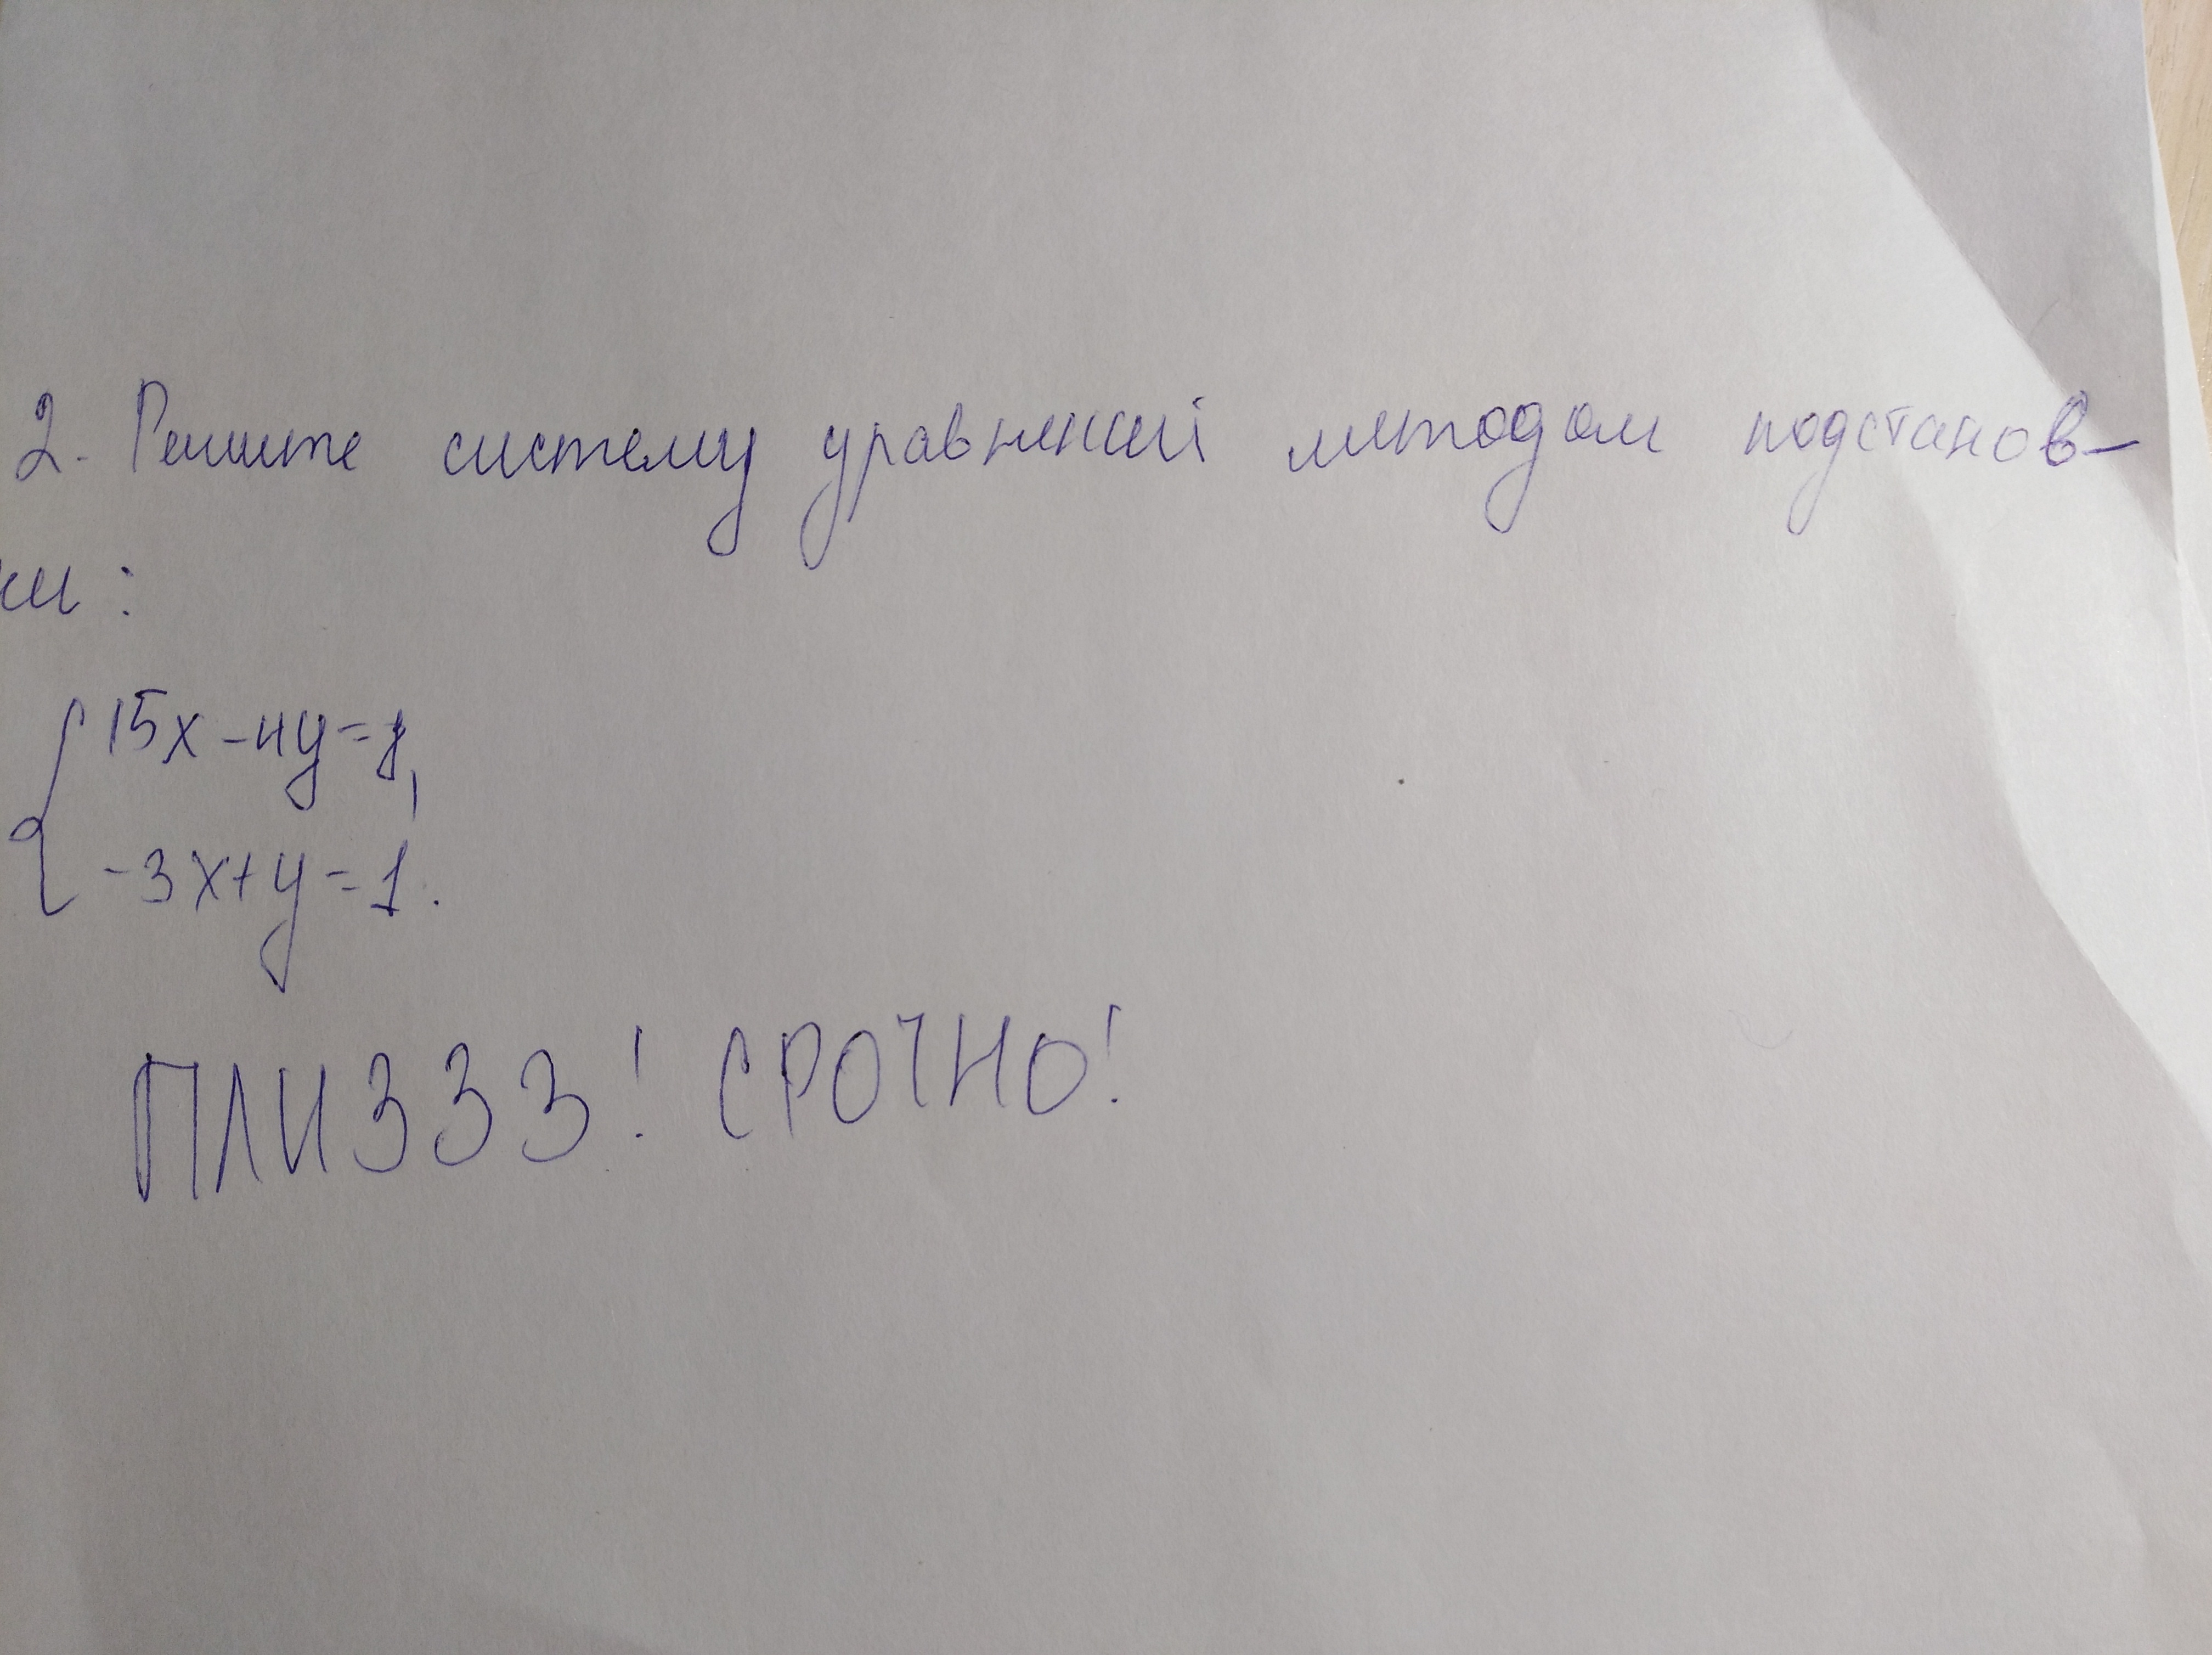 2. Решите систему уравнений методом подстанов-
ки:
15x-4y=8,
-3x+y=1.
ПЛИЗЗЗ! СРОЧНО!